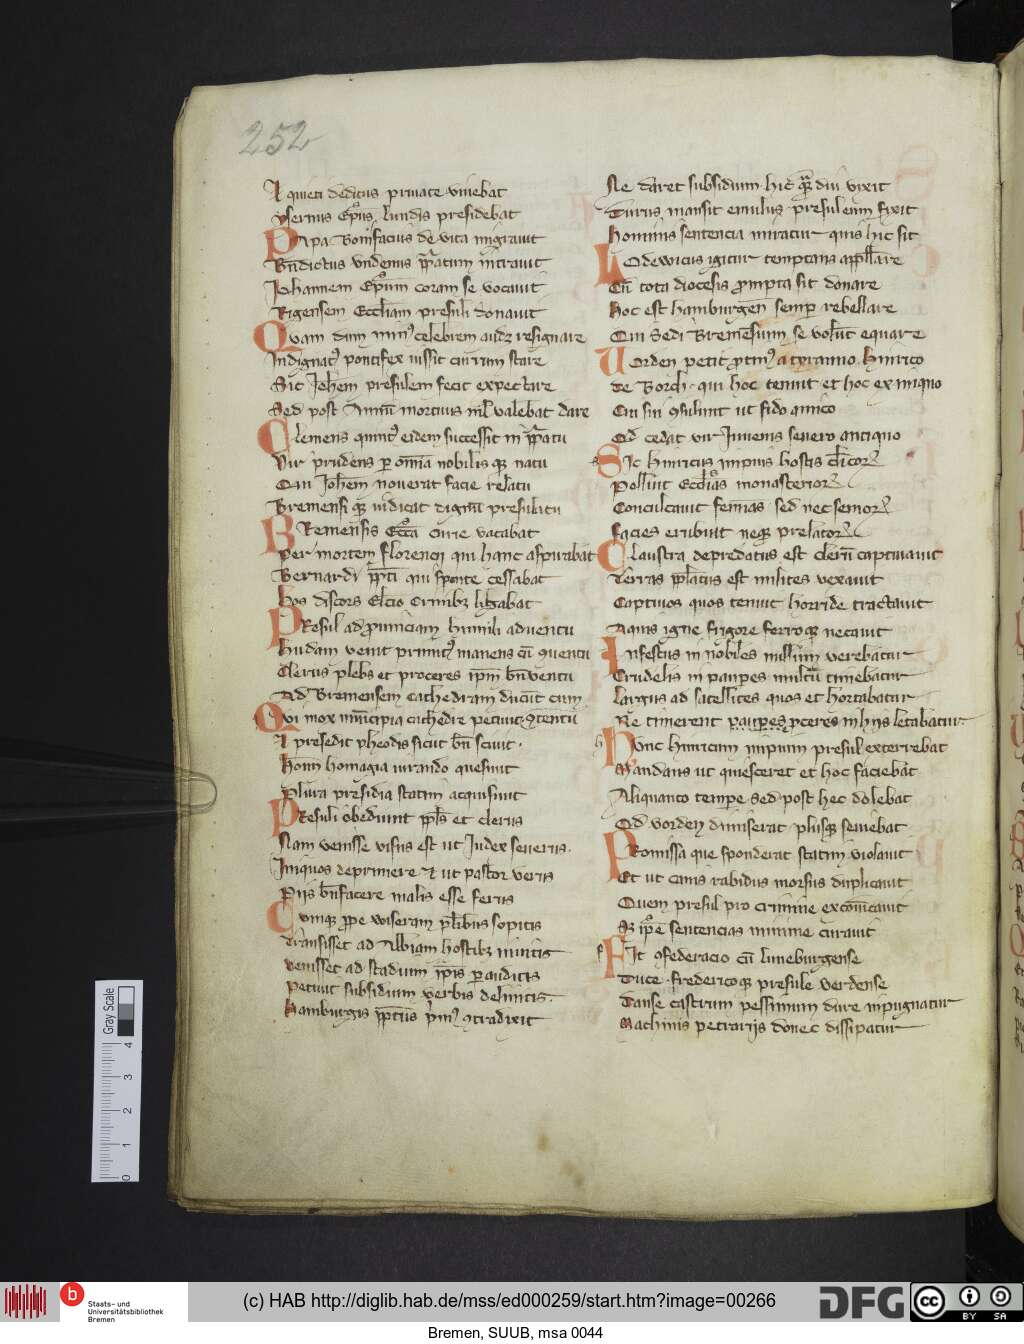 252
A quieti deditus priuate viuebat
yseruus Ep̄us lundis presidebat
Papa Bonifacius de vita migrauit
Bn̄dictus vndenus p̄latum intrauit
Iohannem Ep̄um coram se vocauit
Rigensem Eccl̄iam presuli donauit
Quam dum minus celebrem audz resignare
Indignatꝰ pontifex iussit currum stare
Sic Joh̄em presulem fecit expectare
Sed post Annū mortuus nil valebat dare
Clemens quintꝰ eidem successit in p̄latu
Vir prudens per om̄ia nobilis qꝫ natu
Qui Joh̄em nouerat facie relatu
Bremensi qꝫ iudicat dignū presulatu
Bremensis Ecc̄a Curie vacabat
Per mortem florencij qui hanc aspirabat
Bernardi p̄ti qui sponte cessabat
hos discors Elc̄io Criminibꝫ ligabat
Presul ad prouinciam humili aduentu
hudam venit primitꝰ manens cū ꝯuentu
Clerus plebs et proceres ip̄m bn̄ventu
Ad Bremensem cathedram ducūt cum
Qui mox municipia cathedre petiuit ꝯtentū
A presedit pheodis sicut bn̄ sciuit
hom̄ homagia iurando quesiuit
Plura presidia statim acquisiuit
Presuli obediunt pp̄ls et clerus
Nam venisse visus est ut Iudex seuerus
Iniquos deprimere et ut pastor verus
Piis bn̄facere malis esse ferus
Cumqꝫ prope wiseram p̄libus sopitis
Transisset ad Albiam hostibꝫ inuitis
venisset ad stadium ip̄is per auditis
Petiuit subsidium verbis delinitis
hamburgis p̄ptus p̄mꝰ ꝯtradixit
Ne daret subsidium hic qm̄ diu vixit
Durus mansit emulus presuleum fixit
hominis sentencia miratur quis hic sit
Lodewicus igitur temptans appellare
Cū tota diocesis prompta sit donare
hoc est hamburgen̄ semper rebellare
Qui Sedi Bremensium se volūt equare
Uorden petit protinꝰ a tyranno hinrico
de Borch qui hoc tenuit et hoc ex iniquo
Cui sui ꝯsulunt ut fido amico
Qd cedat vir Iuuenis seuero antiquo
Sic hinricus impius hostis cl̄icorꝝ
Polluit Eccl̄ias monasteriorꝝ
Conculcauit feminas sed nec seniorꝝ
facies erubuit neqꝫ prelatorꝝ
Claustra depredatus est clerū captiuauit
Terras pp̄latus est milites vexauit
Captiuos quos tenuit horride tractauit
Aquis igne frigore ferroqꝫ necauit
Infestus in nobiles nullum verebatur
Crudelis in paupes multū timebatur
largus ad satellites quos et hortabatur
Ne timerent paupes pceres in hijs letabatur
hunc hinricum impium presul exterrebat
Mandans ut quiesceret et hoc faciebat
Aliquanto tempore sed post hec dolebat
Qd vorden dimiserat plusqꝫ seuiebat
Promissa que sponderat statim violauit
Et ut canis rabidus morsus duplicauit
Quem presul pro crimine excom̄icauit
Sꝫ ip̄e sentencias minime curauit
Fit ꝯfederacio cū luneburgense
Duce fredericoqꝫ presule verdense
Danse castrum pessimum dure inpugnatur
Machinis petrarijs donec dissipatur
Gray Scale
4
3
2
1
0
b Staats- und
Universitätsbibliothek
Bremen
(c) HAB http://diglib.hab.de/mss/ed000259/start.htm?image=00266
DFG
cc BY SA
Bremen, SUUB, msa 0044